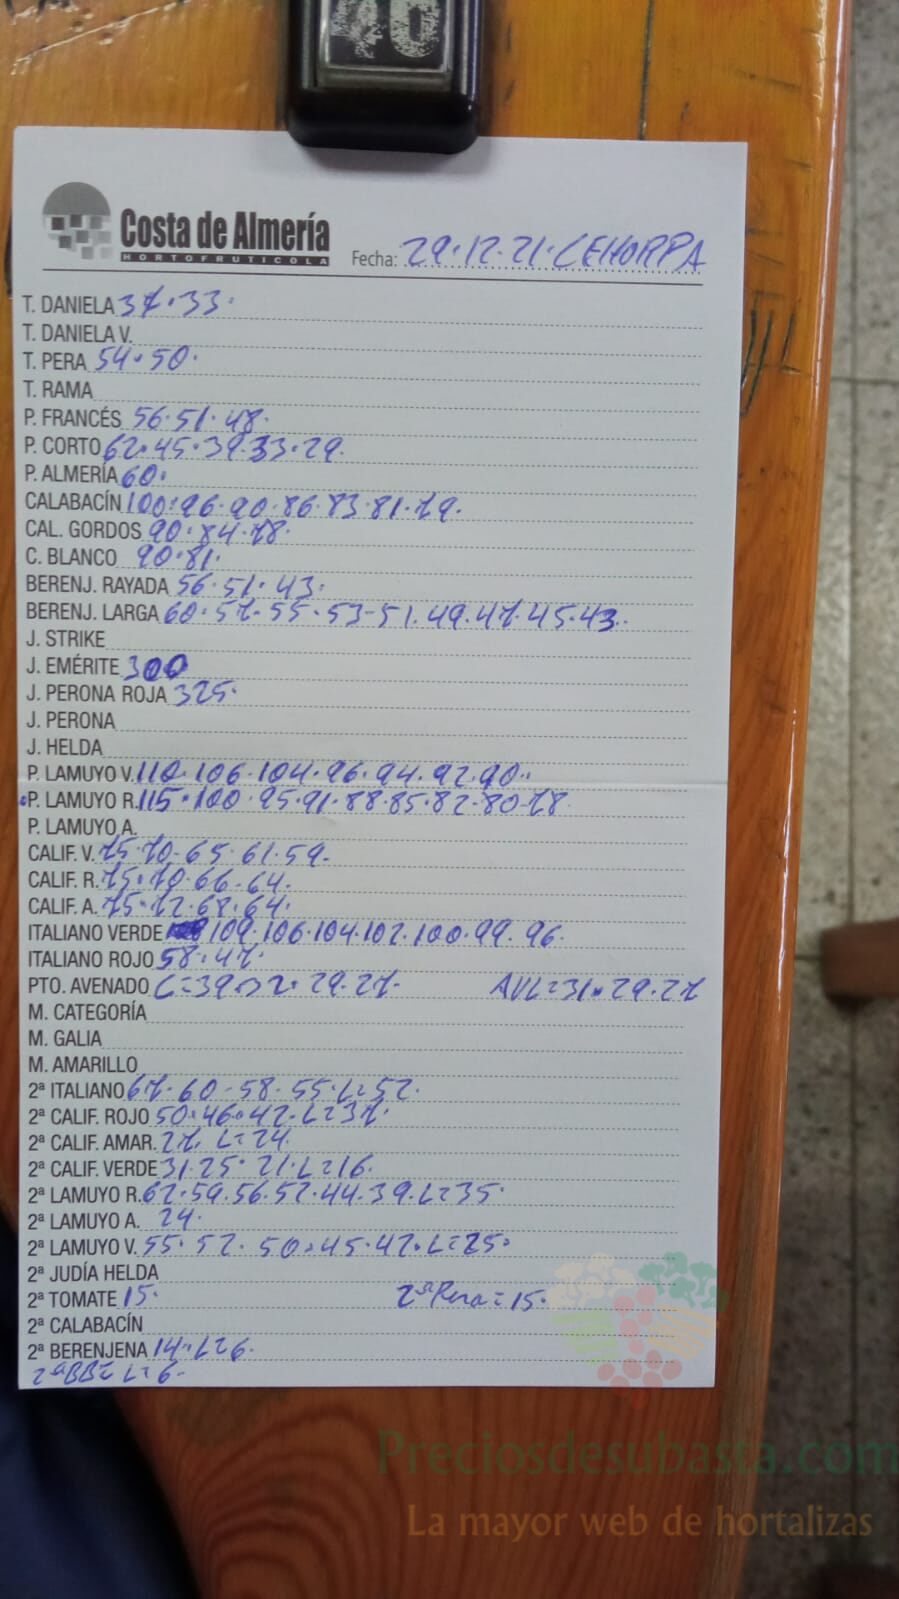 Costa de Almería
HORTOFRUTICOLA
Fecha: 29.12.21. CEHORPA
T. DANIELA 37.33.
T. DANIELA V.
T. PERA 54.50.
T. RAMA
P. FRANCÉS 56.51.48.
P. CORTO 62.45.39.33.29.
P. ALMERÍA 60.
CALABACÍN 100.96.90.86.83.81.79.
CAL. GORDOS 90.84.78.
C. BLANCO 90.81.
BERENJ. RAYADA 56.51.43.
BERENJ. LARGA 60.57.55.53-51.49.47.45.43.
J. STRIKE
J. EMÉRITE 300
J. PERONA ROJA 325.
J. PERONA
J. HELDA
P. LAMUYO V. 110.106.104.96.94.92.90..
P. LAMUYO R. 115.100.95.91.88.85.82.80.78
P. LAMUYO A.
CALIF. V. 75.70.65.61.59.
CALIF. R. 75.70.66.64.
CALIF. A. 75.72.68.64.
ITALIANO VERDE 109.106.104.102.100.99.96.
ITALIANO ROJO 58.47.
PTO. AVENADO C=39 29.27. AVL=31.29.27
M. CATEGORÍA
M. GALIA
M. AMARILLO
2ª ITALIANO 67.60-58.55.L=52.
2ª CALIF. ROJO 50.46.42.L=37.
2ª CALIF. AMAR. 27. L=24.
2ª CALIF. VERDE 31.25.21.L=16.
2ª LAMUYO R. 62.59.56.52.44.39.L=35.
2ª LAMUYO A. 24.
2ª LAMUYO V. 55.52.50.45.42.L=25.
2ª JUDÍA HELDA
2ª TOMATE 15. 2ª Pera=15.
2ª CALABACÍN
2ª BERENJENA 14.L=6.
2ªBB= L=6.
Preciosdesubasta.com
La mayor web de hortalizas